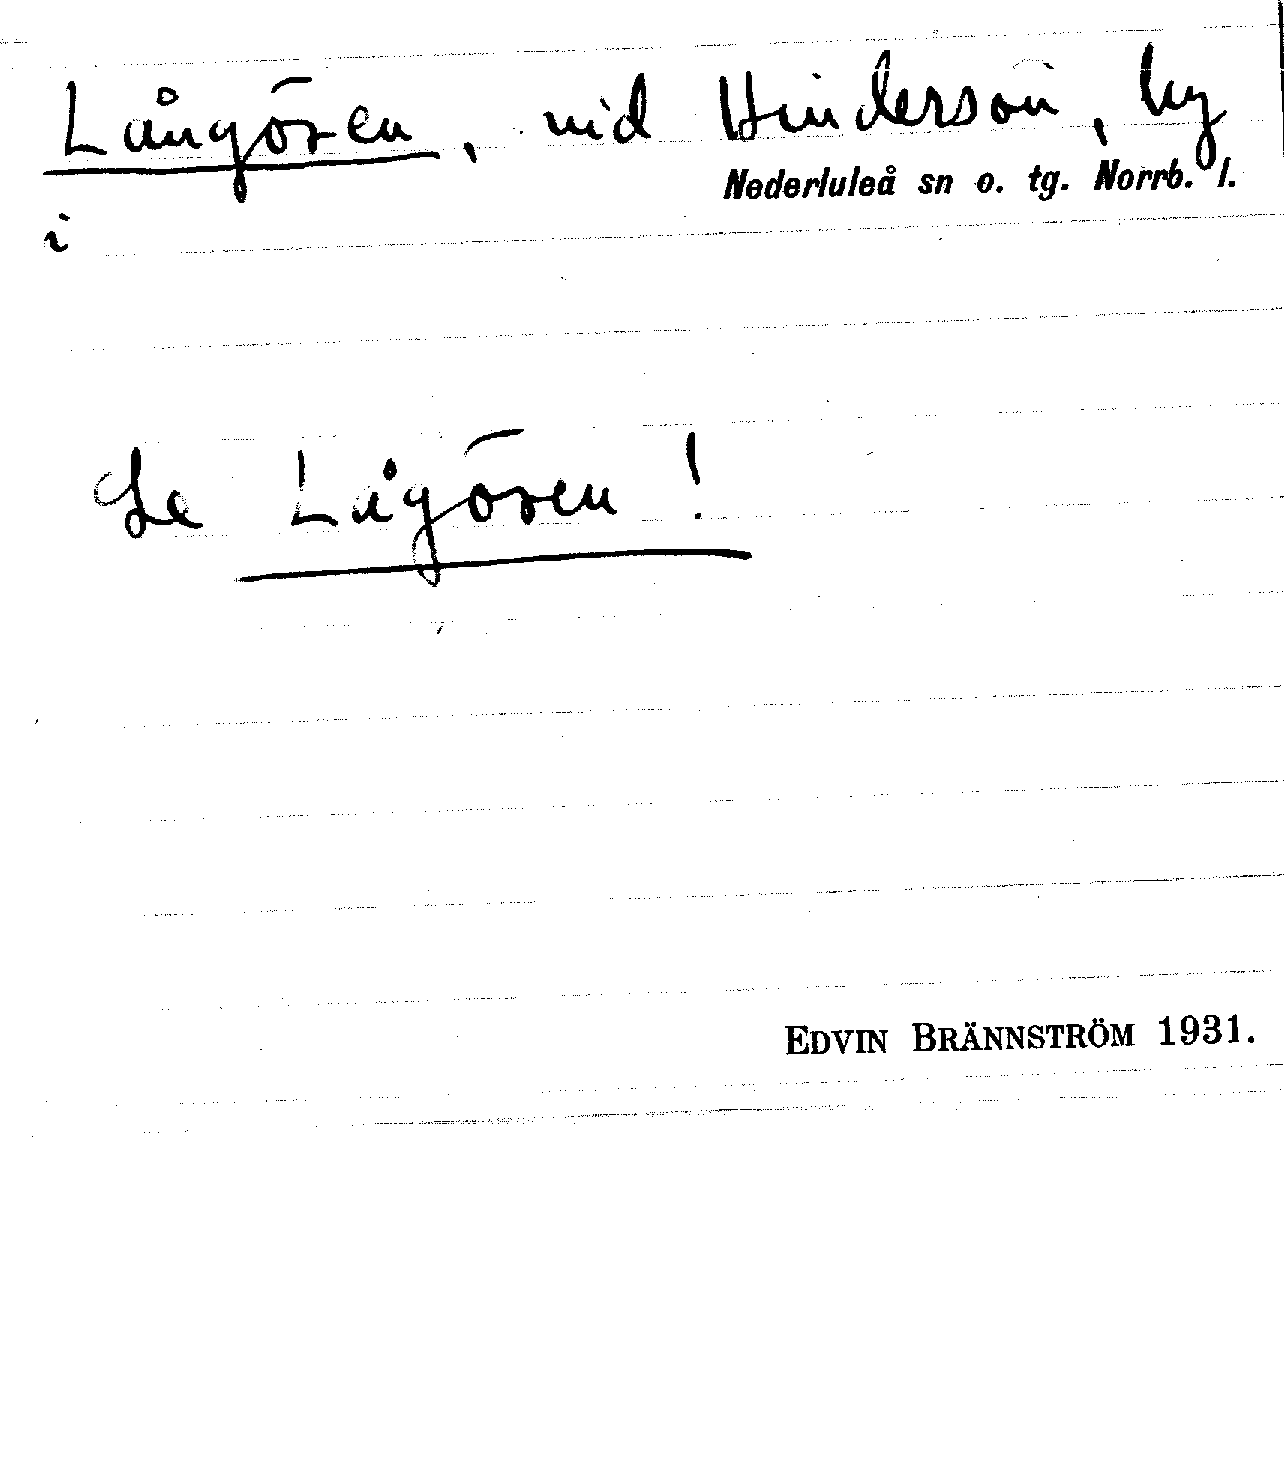 Långören, vid Hindersön, by
Nederluleå sn o. tg. Norrb. l.
i
Se Lågören!
EDVIN BRÄNNSTRÖM 1931.